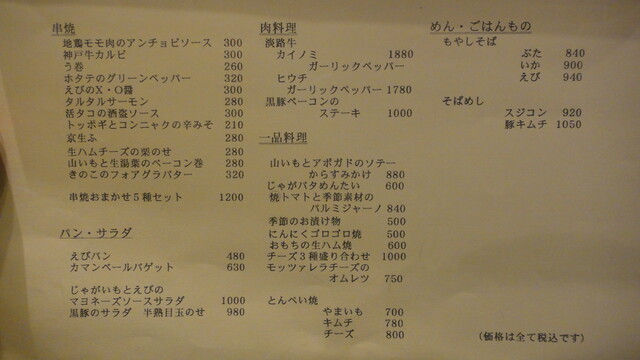 串焼
地鶏モモ肉のアンチョビソース 300
神戸牛カルビ 300
う巻 260
ホタテのグリーンペッパー 320
えびのX・O醤 300
タルタルサーモン 280
活タコの酒盗ソース 300
トッポギとコンニャクの辛みそ 210
京生ふ 280
生ハムチーズの栗のせ 280
山いもと生湯葉のベーコン巻 280
きのこのフォアグラバター 320
串焼おまかせ5種セット 1200
パン・サラダ
えびパン 480
カマンベールバゲット 630
じゃがいもとえびの
マヨネーズソースサラダ 1000
黒豚のサラダ 半熟目玉のせ 980
肉料理
淡路牛
カイノミ 1880
ガーリックペッパー
ヒウチ
ガーリックペッパー 1780
黒豚ベーコンの
ステーキ 1000
一品料理
山いもとアボガドのソテー
からすみかけ 880
じゃがバタめんたい 600
焼トマトと季節素材の
パルミジャーノ 840
季節のお漬け物 500
にんにくゴロゴロ焼 500
おもちの生ハム焼 600
チーズ3種盛り合わせ 1000
モッツァレラチーズの
オムレツ 750
とんぺい焼
やまいも 700
キムチ 780
チーズ 800
めん・ごはんもの
もやしそば
ぶた 840
いか 900
えび 940
そばめし
スジコン 920
豚キムチ 1050
(価格は全て税込です)